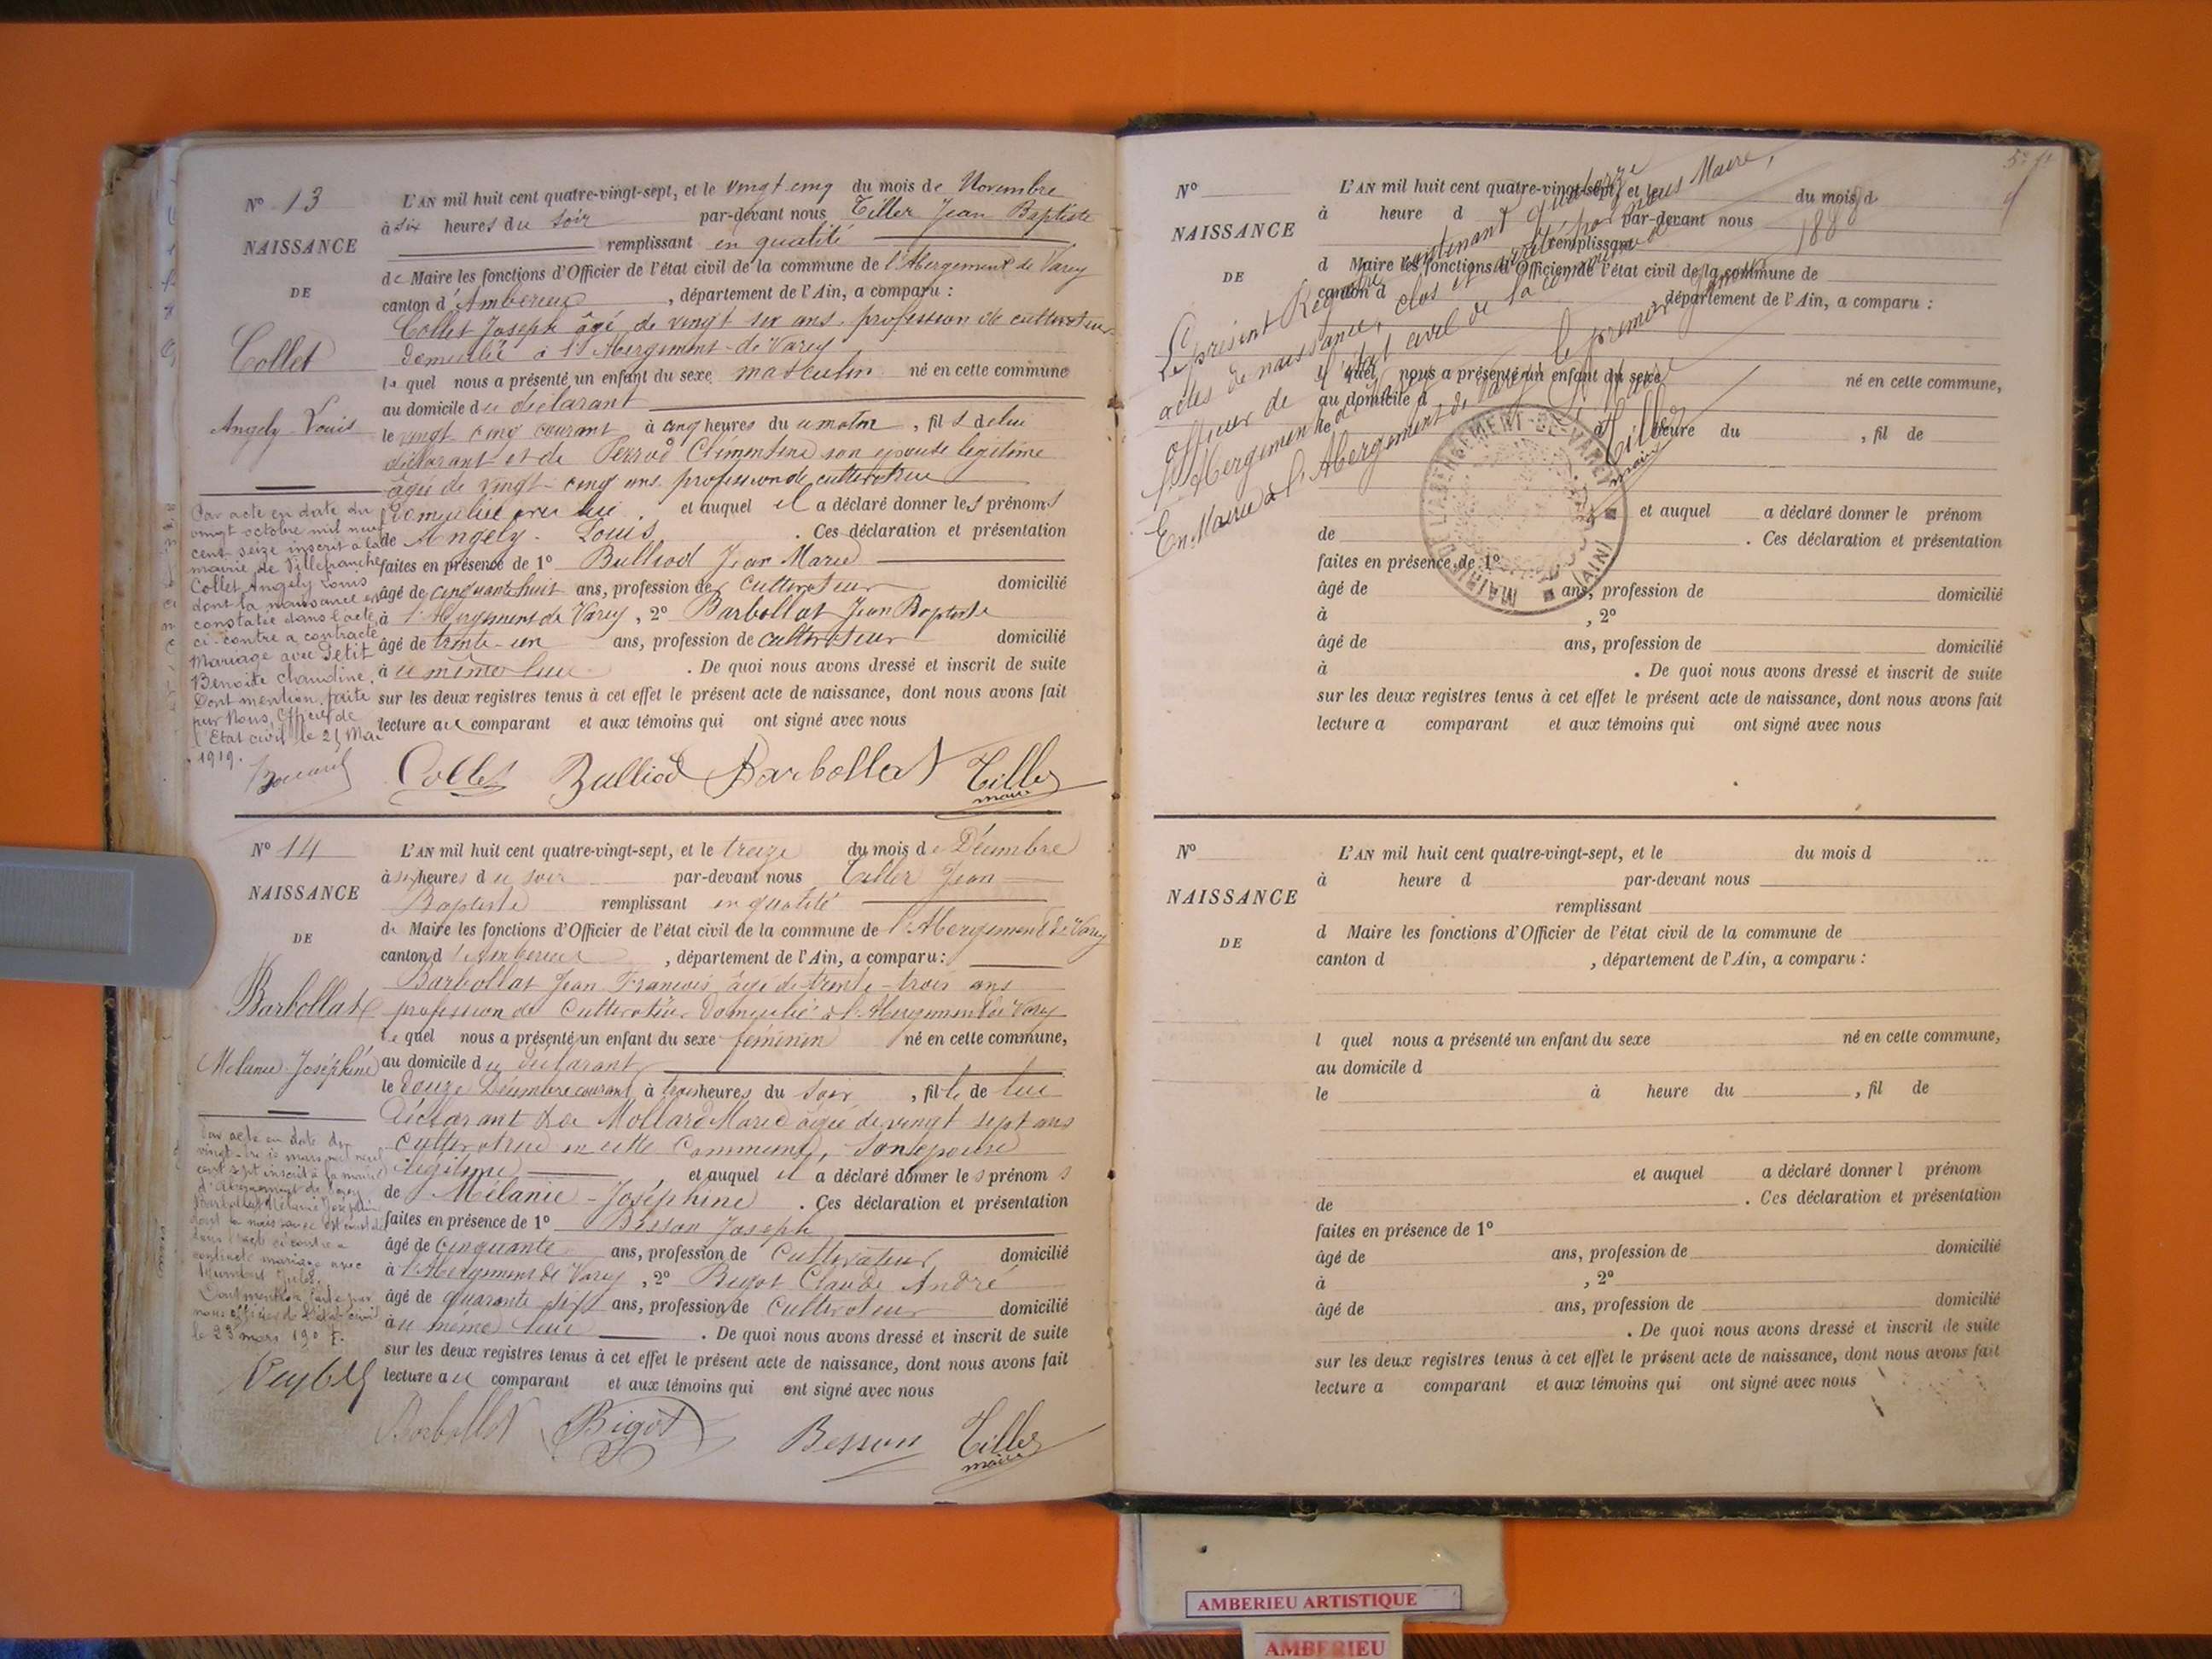 N° 13
NAISSANCE
DE
Collet
Angely Louis
L'AN mil huit cent quatre-vingt-sept, et le vingt cinq du mois de Novembre
à six heures du soir par-devant nous Tiller Jean Baptiste
remplissant en qualité
de Maire les fonctions d'Officier de l'état civil de la commune de l'Abergement de Varey
canton d'Ambérieu, département de l'Ain, a comparu :
Collet Joseph âgé de vingt six ans, profession de cultivateur
domicilié à l'Abergement-de-Varey
lequel nous a présenté un enfant du sexe masculin né en cette commune
au domicile du déclarant
le vingt cinq courant à cinq heures du matin, fils de lui
déclarant et de Perrod Clémentine son épouse légitime
âgée de vingt-cinq ans profession de cultivatrice
domiciliée avec lui. et auquel il a déclaré donner les prénoms
de Angely-Louis. Ces déclaration et présentation
faites en présence de 1° Bulliod Jean Marie
âgé de cinquante huit ans, profession de cultivateur domicilié
à l'Abergement de Varey, 2° Barbollat Jean Baptiste
âgé de trente-un ans, profession de cultivateur domicilié
à ce même lieu. De quoi nous avons dressé et inscrit de suite
sur les deux registres tenus à cet effet le présent acte de naissance, dont nous avons fait
lecture au comparant et aux témoins qui ont signé avec nous
Collet Bulliod Barbollat Tiller
maire
Par acte en date du
vingt octobre mil neuf
cent seize inscrit à la
mairie de Villefranche
Collet Angely Louis
dont la naissance est
constatée dans l'acte
ci-contre a contracté
Mariage avec Petit
Benoite Claudine.
Dont mention faite
par Nous, Officier de
l'Etat civil le 21 Mai
1919.
N° 14
NAISSANCE
DE
Barbollat
Mélanie Joséphine
L'AN mil huit cent quatre-vingt-sept, et le treize du mois de Décembre
à six heures du soir par-devant nous Tiller Jean
Baptiste remplissant en qualité
de Maire les fonctions d'Officier de l'état civil de la commune de l'Abergement de Varey
canton d'Ambérieu, département de l'Ain, a comparu :
Barbollat Jean François âgé de trente-trois ans
profession de cultivateur domicilié à l'Abergement de Varey
lequel nous a présenté un enfant du sexe féminin né en cette commune,
au domicile du déclarant
le douze Décembre courant à trois heures du soir, fille de lui
déclarant & de Mollard Marie âgée de vingt sept ans
cultivatrice en cette commune, son épouse
légitime et auquel il a déclaré donner les prénoms
de Mélanie-Joséphine. Ces déclaration et présentation
faites en présence de 1° Besson Joseph
âgé de cinquante ans, profession de cultivateur domicilié
à l'Abergement de Varey, 2° Bigot Claude André
âgé de quarante ans, profession de cultivateur domicilié
à ce même lieu. De quoi nous avons dressé et inscrit de suite
sur les deux registres tenus à cet effet le présent acte de naissance, dont nous avons fait
lecture au comparant et aux témoins qui ont signé avec nous
Barbollat Bigot Besson Tiller
maire
Par acte en date du
vingt-trois mars mil neuf
cent sept inscrit à la mairie
d'Abergement de Varey
Barbollat Mélanie Joséphine
dont la naissance est constatée
dans l'acte ci-contre a
contracté mariage avec
Humbert Jules.
Dont mention faite par
nous officier de l'état civil
le 23 mars 1907.
N°
NAISSANCE
DE
L'AN mil huit cent quatre-vingt-sept, et le du mois d
à heure d par-devant nous
remplissant
d Maire les fonctions d'Officier de l'état civil de la commune de
canton d , département de l'Ain, a comparu :
l quel nous a présenté un enfant du sexe né en cette commune,
au domicile d
le à heure du , fil de
et auquel a déclaré donner le prénom
de . Ces déclaration et présentation
faites en présence de 1°
âgé de ans, profession de domicilié
à , 2°
âgé de ans, profession de domicilié
à . De quoi nous avons dressé et inscrit de suite
sur les deux registres tenus à cet effet le présent acte de naissance, dont nous avons fait
lecture a comparant et aux témoins qui ont signé avec nous
Le présent Registre contenant quatorze
actes de naissance, clos et arrêté par nous Maire,
officier de l'état civil de la commune de
l'Abergement de Varey le premier janvier 1888
En Mairie à l'Abergement de Varey
Le Maire
Tiller
maire
MAIRIE DE L'ABERGEMENT-DE-VAREY (AIN)
N°
NAISSANCE
DE
L'AN mil huit cent quatre-vingt-sept, et le du mois d
à heure d par-devant nous
remplissant
d Maire les fonctions d'Officier de l'état civil de la commune de
canton d , département de l'Ain, a comparu :
l quel nous a présenté un enfant du sexe né en cette commune,
au domicile d
le à heure du , fil de
et auquel a déclaré donner l prénom
de . Ces déclaration et présentation
faites en présence de 1°
âgé de ans, profession de domicilié
à , 2°
âgé de ans, profession de domicilié
. De quoi nous avons dressé et inscrit de suite
sur les deux registres tenus à cet effet le présent acte de naissance, dont nous avons fait
lecture a comparant et aux témoins qui ont signé avec nous
AMBERIEU ARTISTIQUE
AMBERIEU